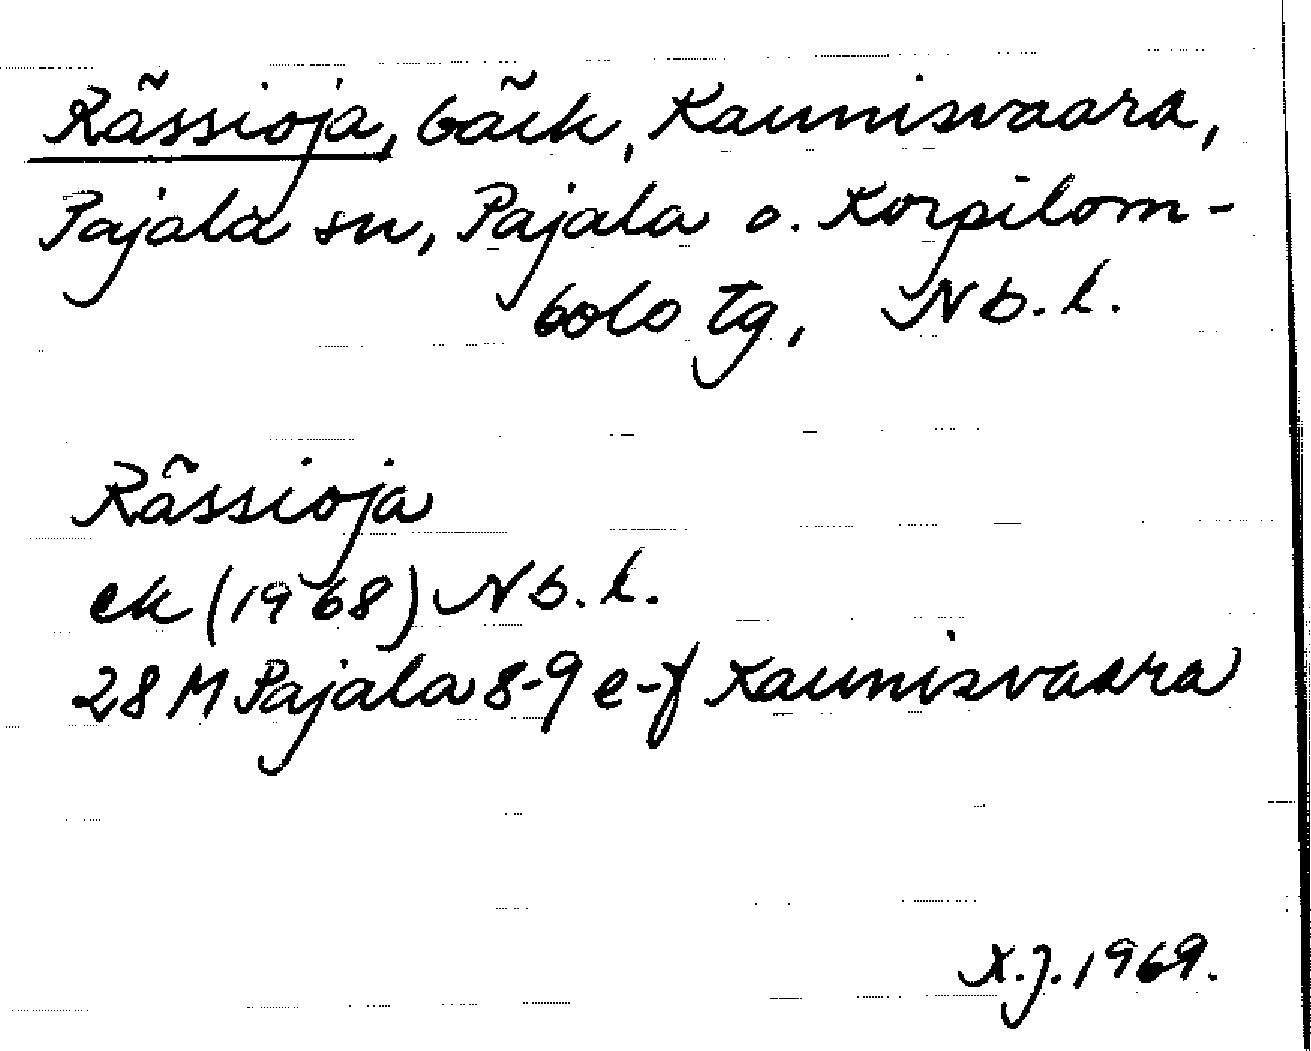 Rässioja, bäck, Kaunisvaara,
Pajala sn, Pajala o. Korpilom-
bolo tg, Nb. l.
Rässioja
ek (1968) Nb. l.
28 M Pajala 8-9 e-f Kaunisvaara
K.J. 1969.